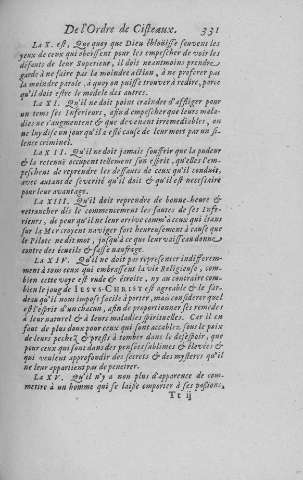 De l'Ordre de Cisteaux. 331
La X. est, Que quoy que Dieu éblouïsse souvent les
yeux de ceux qui obeïssent pour les empescher de voir les
défauts de leur Superieur, il doit neantmoins prendre
garde à ne faire pas la moindre action, à ne proferer pas
la moindre parole, à quoy on puisse trouver à redire, parce
qu'il doit estre le modele des autres.
La XI. Qu'il ne doit point craindre d'affliger pour
un tems ses Inferieurs, afin d'empescher que leurs mala-
dies ne s'augmentent & que devenant irremediables, on
ne luy dise un jour qu'il a esté cause de leur mort par un si-
lence criminel.
La XII. Qu'il ne doit jamais souffrir que la pudeur
& la retenuë occupent tellement son esprit, qu'elles l'em-
peschent de reprendre les deffauts de ceux qu'il conduit,
avec autant de severité qu'il doit & qu'il est necessaire
pour leur avantage.
La XIII. Qu'il doit reprendre de bonne-heure &
retrancher dés le commencement les fautes de ses Infe-
rieurs, de peur qu'il ne leur arrive comme à ceux qui étans
sur la Mer croyent naviger fort heureusement à cause que
le Pilote ne dit mot, jusqu'à ce que leur vaisseau donne
contre des écueils & fasse naufrage.
La XIV. Qu'il ne doit pas representer indifferem-
ment à tous ceux qui embrassent la vie Religieuse, com-
bien cette voye est rude & étroite, ny au contraire com-
bien le joug de Jesus-Christ est agreable & le far-
deau qu'il nous impose facile à porter, mais considerer quel
est l'esprit d'un chacun, afin de proportionner ses remedes
à leur naturel & à leurs maladies spirituelles. Car il en
faut de plus doux pour ceux qui sont accablez sous le poix
de leurs pechez & prests à tomber dans le desespoir, que
pour ceux qui sont dans des pensées sublimes & élevées &
qui veulent approfondir des secrets & des mysteres qu'il
ne leur appartient pas de penetrer.
La XV. Qu'il n'y a non plus d'apparence de com-
mettre à un homme qui se laisse emporter à ses passions,
Tt ij